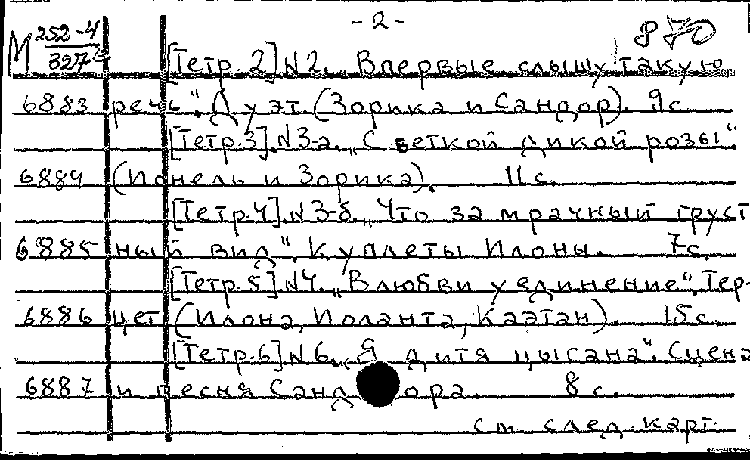 -2-
М 252-4 870
327² [Тетр.2] N2. „Впервые слышу такую
6883 речь". Дуэт. (Зорика и Сандор). 9с.
[Тетр.3]. N3-а. „С веткой дикой розы".
6884 (Ионель и Зорика). 11с.
[Тетр.4]. N3-б. „Что за мрачный груст
6885 ный вид". Куплеты Илоны. 7с.
[Тетр.5] N4. „В любви уединение". Тер-
6886 цет (Илона, Иоланта, Каэтан). 15с.
[Тетр.6] N6. „Я дитя цыгана". Сцена
6887 и песня Сандора. 8с.
см. след. карт.